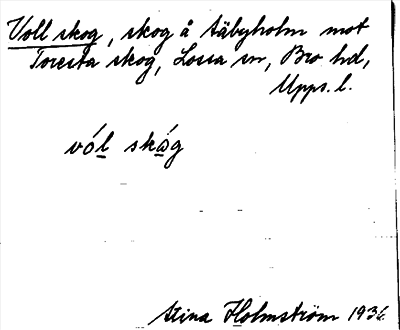 Voll skog, skog å Säbyholm mot
Toresta skog, Lossa sn, Bro hd,
Upps. l.
vó̱l skág
Stina Holmström 1936.